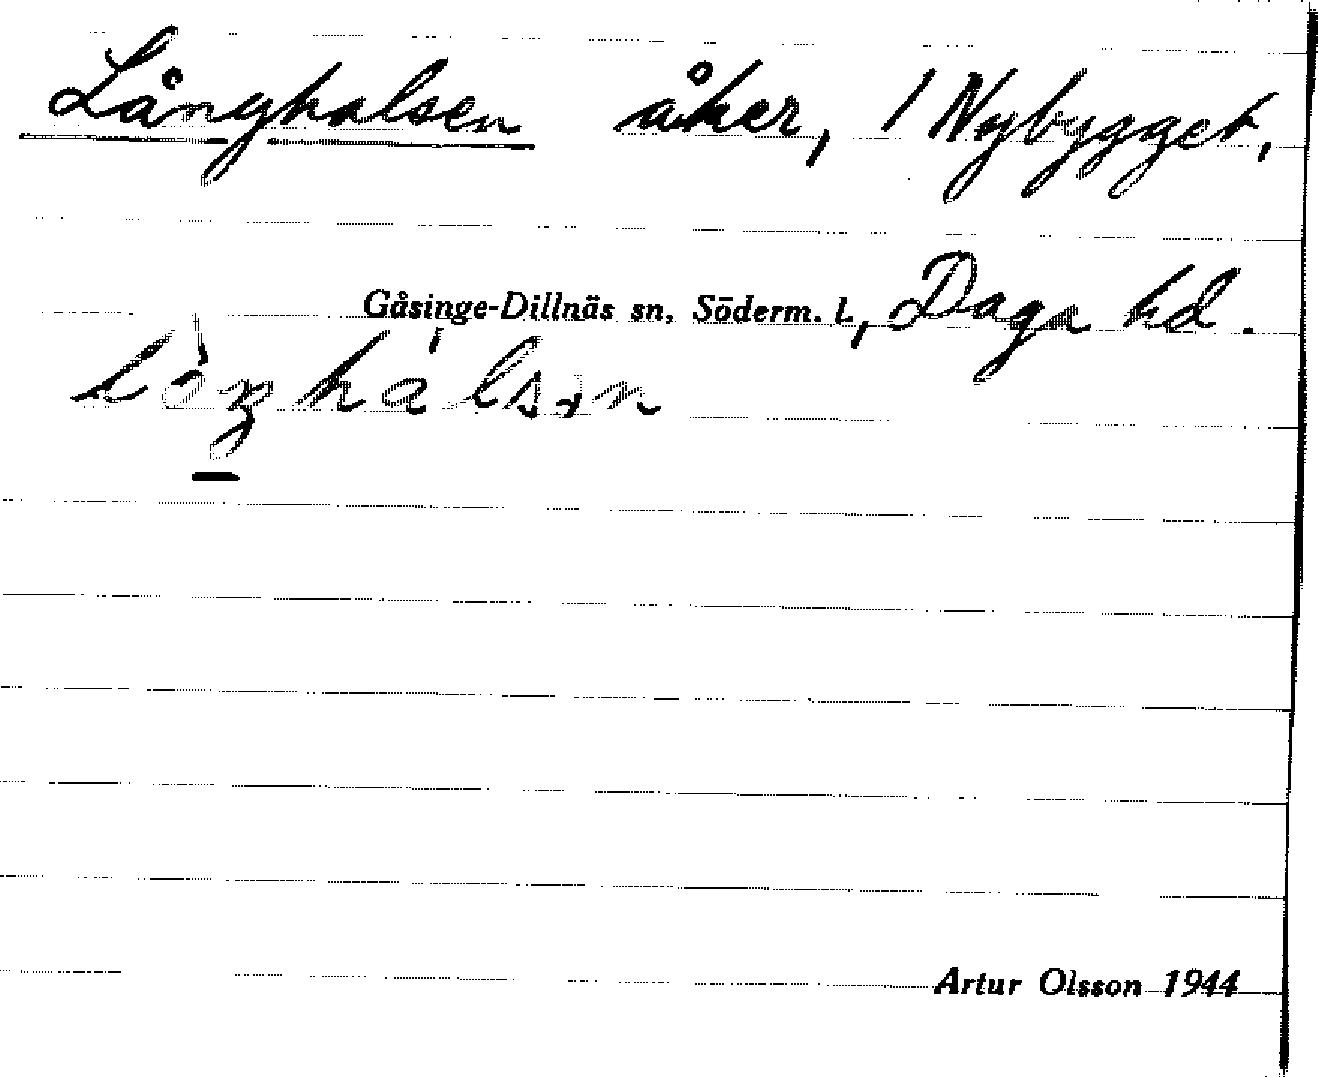 Långhalsen åker, 1 Nybygget,
Gåsinge-Dillnäs sn, Söderm. l., Daga hd.
Artur Olsson 1944